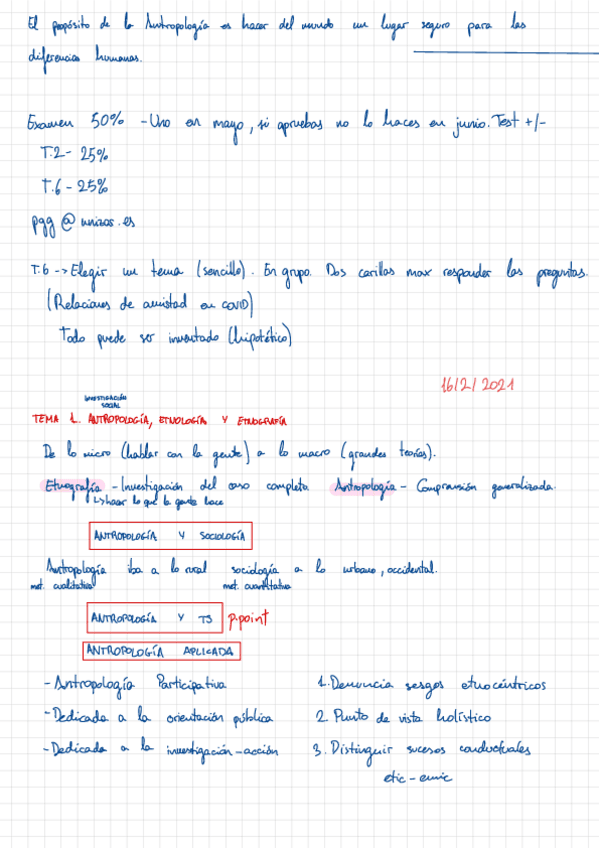 El propósito de la Antropología es hacer del mundo un lugar seguro para las
diferencias humanas.
Examen 50% - Uno en mayo, si apruebas no lo haces en junio. Test +/-
T.2 - 25%
T.6 - 25%
pgg @ unizar.es
T.6 -> Elegir un tema (sencillo). En grupo. Dos carillas max responder las preguntas.
(Relaciones de amistad en COVID)
Todo puede ser inventado (hipotético)
16/2/2021
INVESTIGACIÓN
SOCIAL
TEMA 1. ANTROPOLOGÍA, ETNOLOGÍA Y ETNOGRAFÍA
De lo micro (hablar con la gente) a lo macro (grandes teorías).
Etnografía - Investigación del caso completo. Antropología - Comprensión generalizada.
↳ hacer lo que la gente hace
ANTROPOLOGÍA Y SOCIOLOGÍA
Antropología iba a lo rural sociología a lo urbano, occidental.
met. cualitativa met. cuantitativa
ANTROPOLOGÍA Y TS p.point
ANTROPOLOGÍA APLICADA
- Antropología Participativa 1. Denuncia sesgos etnocéntricos
- Dedicada a la orientación pública 2. Punto de vista holístico
- Dedicada a la investigación-acción 3. Distinguir sucesos conductuales
etic - emic